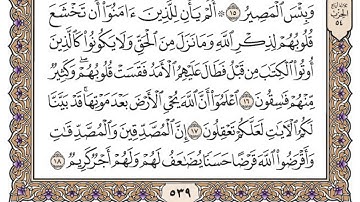 وَبِئْسَ الْمَصِيرُ ١٥ أَلَمْ يَأْنِ لِلَّذِينَ ءَامَنُوٓا۟ أَن تَخْشَعَ
قُلُوبُهُمْ لِذِكْرِ اللَّهِ وَمَا نَزَلَ مِنَ الْحَقِّ وَلَا يَكُونُوا۟ كَالَّذِينَ
أُوتُوا۟ الْكِتَٰبَ مِن قَبْلُ فَطَالَ عَلَيْهِمُ الْأَمَدُ فَقَسَتْ قُلُوبُهُمْ ۖ وَكَثِيرٌ
مِّنْهُمْ فَٰسِقُونَ ١٦ اعْلَمُوٓا۟ أَنَّ اللَّهَ يُحْىِ الْأَرْضَ بَعْدَ مَوْتِهَا ۚ قَدْ بَيَّنَّا
لَكُمُ الْءَايَٰتِ لَعَلَّكُمْ تَعْقِلُونَ ١٧ إِنَّ الْمُصَّدِّقِينَ وَالْمُصَّدِّقَٰتِ
وَأَقْرَضُوا۟ اللَّهَ قَرْضًا حَسَنًا يُضَٰعَفُ لَهُمْ وَلَهُمْ أَجْرٌ كَرِيمٌ ١٨
٥٣٩